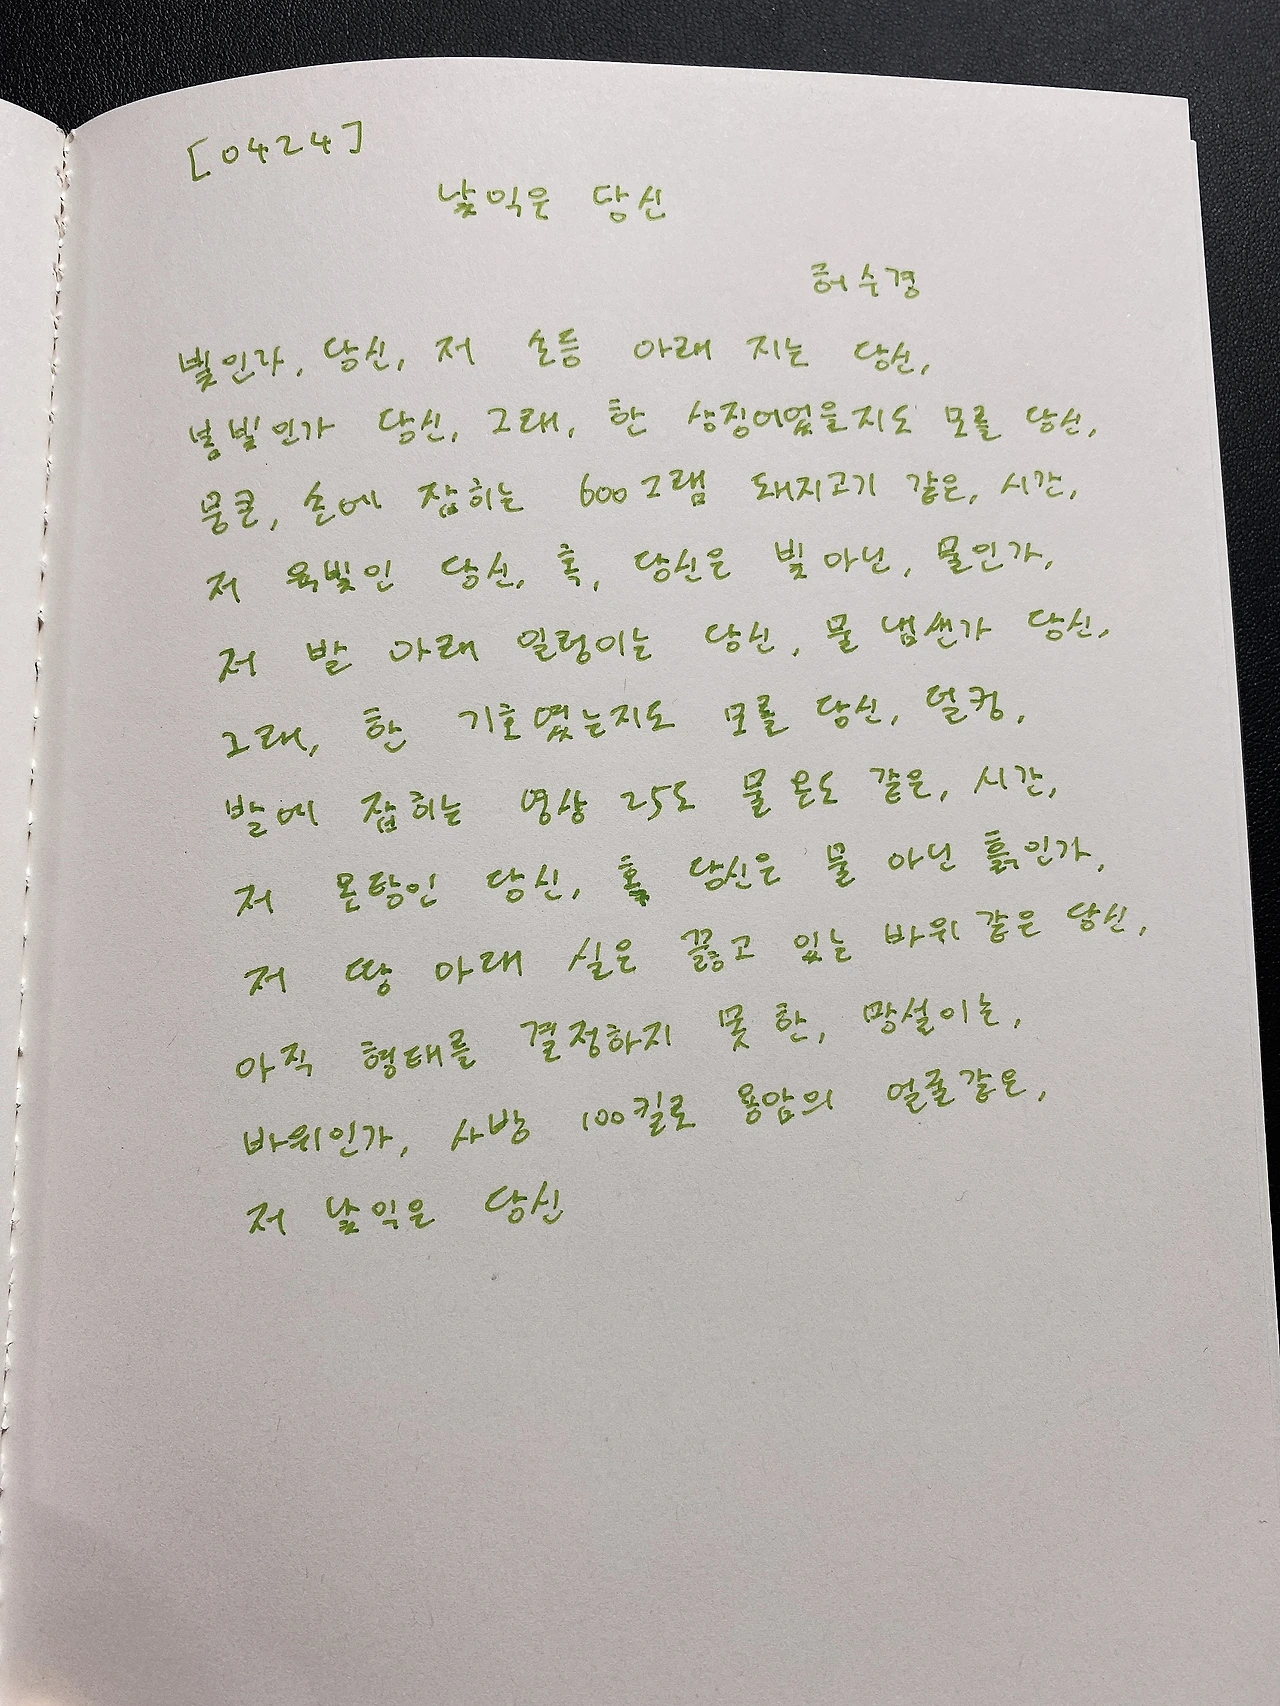 [0424]
낯익은 당신
허수경
빛인가, 당신, 저 손등 아래 지는 당신,
봄빛인가 당신, 그래, 한 상징어었을지도 모를 당신,
뭉클, 손에 잡히는 600그램 돼지고기 같은, 시간,
저 육빛인 당신, 혹, 당신은 빛 아닌, 물인가,
저 발 아래 일렁이는 당신, 물 냄샌가 당신,
그래, 한 기호였는지도 모를 당신, 덜컹,
발에 잡히는 영상 25도 물 온도 같은, 시간,
저 온탕인 당신, 혹 당신은 물 아닌 흙인가,
저 땅 아래 실은 끓고 있는 바위 같은 당신,
아직 형태를 결정하지 못 한, 망설이는,
바위인가, 사방 100킬로 용암의 얼굴같은,
저 낯익은 당신